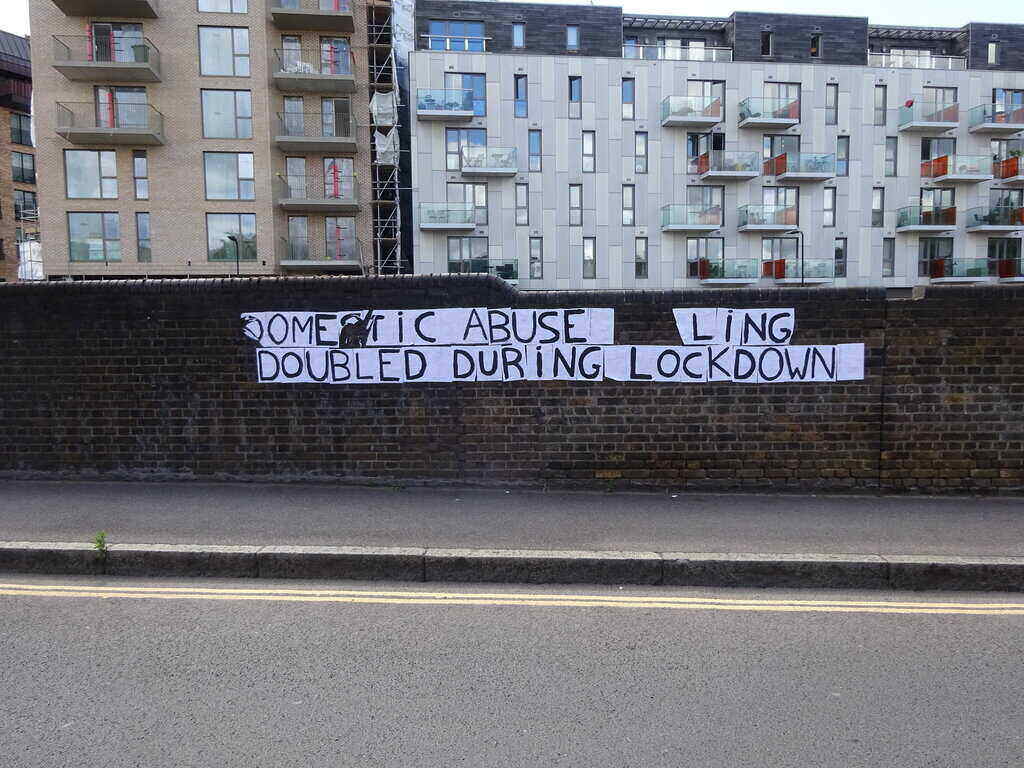 DOMESTIC ABUSE LING
DOUBLED DURING LOCKDOWN